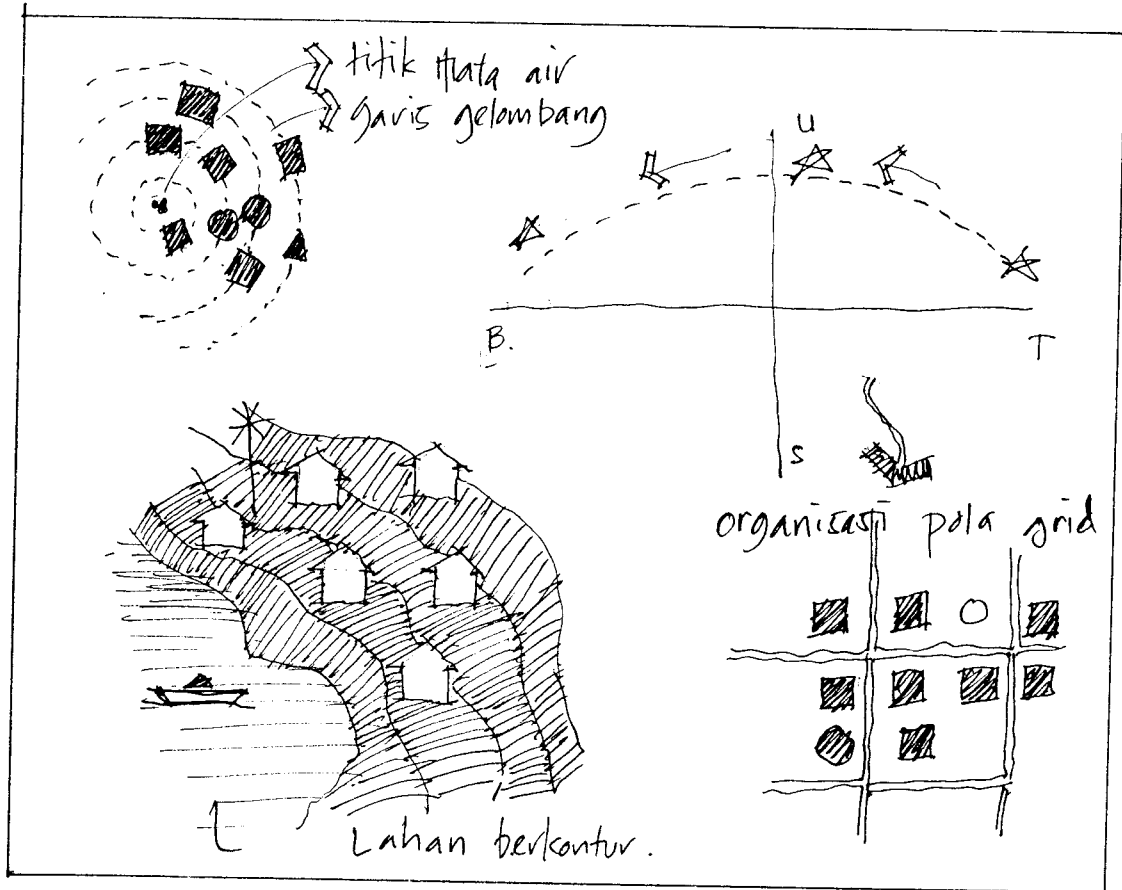 titik mata air
garis gelombang
U
B.
T
S
organisasi pola grid
Lahan berkontur.